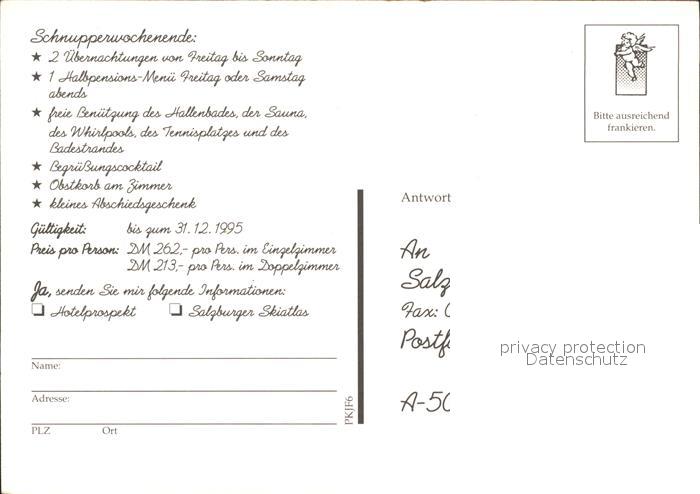 Schnupperwochenende:
★ 2 Übernachtungen von Freitag bis Sonntag
★ 1 Halbpensions-Menü Freitag oder Samstag
abends
★ freie Benützung des Hallenbades, der Sauna,
des Whirlpools, des Tennisplatzes und des
Badestrandes
★ Begrüßungscocktail
★ Obstkorb am Zimmer
★ kleines Abschiedsgeschenk
Gültigkeit: bis zum 31.12.1995
Preis pro Person: DM 262,- pro Pers. im Einzelzimmer
DM 213,- pro Pers. im Doppelzimmer
Ja, senden Sie mir folgende Informationen:
❏ Hotelprospekt ❏ Salzburger Skiatlas
Name:
Adresse:
PLZ Ort
PKJF6
Bitte ausreichend
frankieren.
Antwort
An
Salz
Fax: (
Postf
A-50
privacy protection
Datenschutz